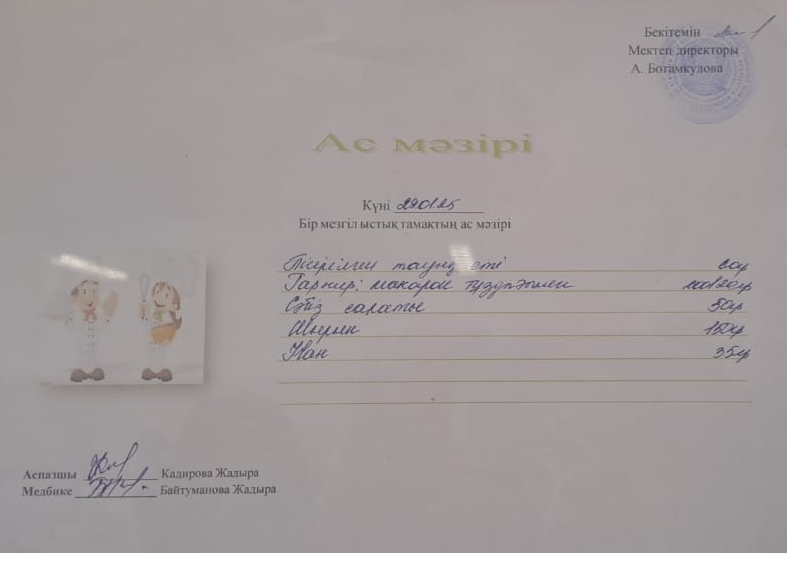 Бекітемін
Мектеп директоры
А. Ботамкулова
Ас мәзірі
Күні 29.01.25
Бір мезгіл ыстық тамақтың ас мәзірі
Пісірілген тауық еті
Гарнир: макарон тұздықпен
Сәбіз салаты 50гр
Шырын 150гр
Нан 35гр
Аспазшы Кадирова Жадыра
Медбике Байтуманова Жадыра